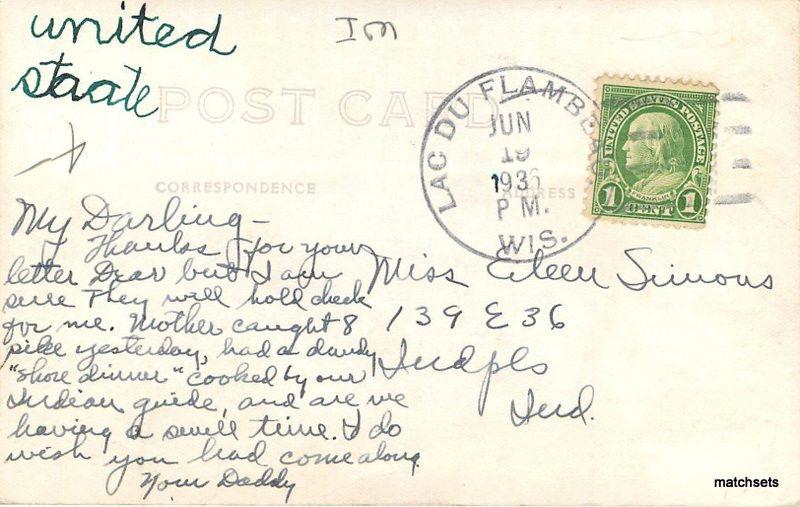 united
staate
Im
POST CARD
CORRESPONDENCE
ADDRESS
LAC DU FLAMBEAU
JUN
19
1936
P M.
WIS.
UNITED STATES POSTAGE
FRANKLIN
1 CENT 1
My Darling –
Thanks for your
letter Dear but I am
sure They will hold check
for me. Mother caught 8
pike yesterday, had a dandy
"shore dinner" cooked by our
Indian guide, and are we
having a swell time. I do
wish you had come along.
Your Daddy
Miss Eileen Simons
139 E 36
Indpls
Ind.
matchsets